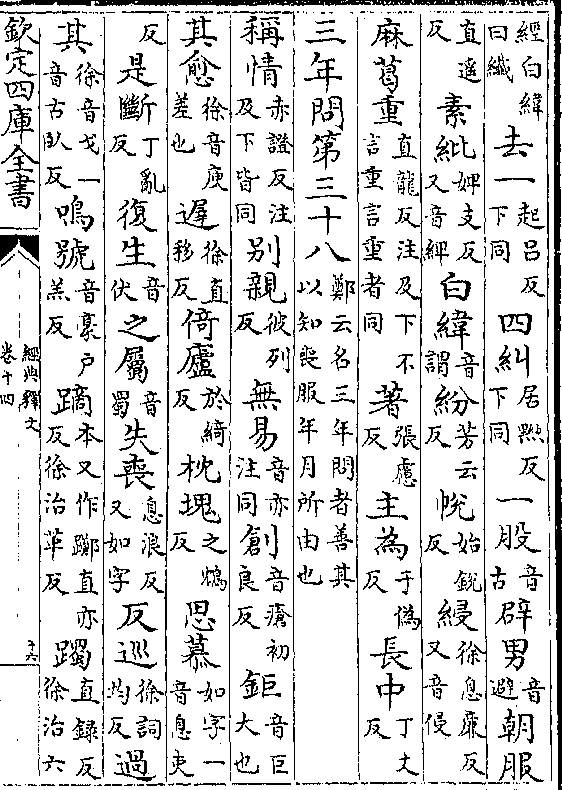 經白緯曰纎去一起吕反下同四糾居黝反下同一股音古辟男音避朝服
直遥反素紕婢支反又音紕白緯音謂紛芳云反帨始鋭反綅徐息廉反又音侵
麻葛重直龍反注及下不言重言重者同著張慮反主為于偽反長中丁丈反
三年問第三十八鄭云名三年問者善其以知喪服年月所由也
稱情尺證反注及下皆同别親彼列反無易音亦注同創音瘡初良反鉅音巨大也
其愈徐音庾差也遲徐直移反倚廬於綺反枕塊之鴆反思慕如字一音息吏
反是斷丁亂反復生音伏之屬音蜀失喪息浪反又如字反巡徐詞均反過
其徐音戈一音古卧反鳴號音豪户羔反蹢本又作躑直亦反徐治革反躅直録反徐治六
欽定四庫全書
經典釋文
卷十四
十六